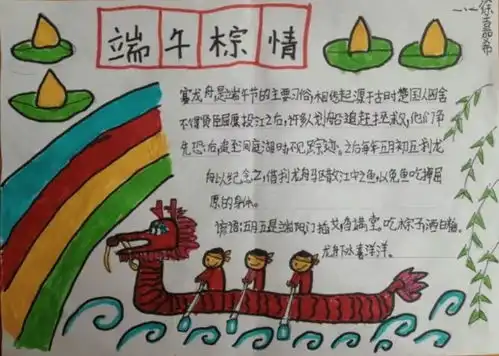 端午棕情
赛龙舟,是端午节的主要习俗,相传起源于古时楚国人因舍
不得贤臣屈原投江死去,许多人划船追赶拯救,他们争
先恐后,追至洞庭湖时不见踪迹。之后每年五月初五划龙
舟以纪念之,借划龙舟驱散江中之鱼,以免鱼吃掉屈
原的身体。
俗语:五月五是端阳,门插艾,香满堂。吃粽子,洒白糖。
龙舟下水喜洋洋。